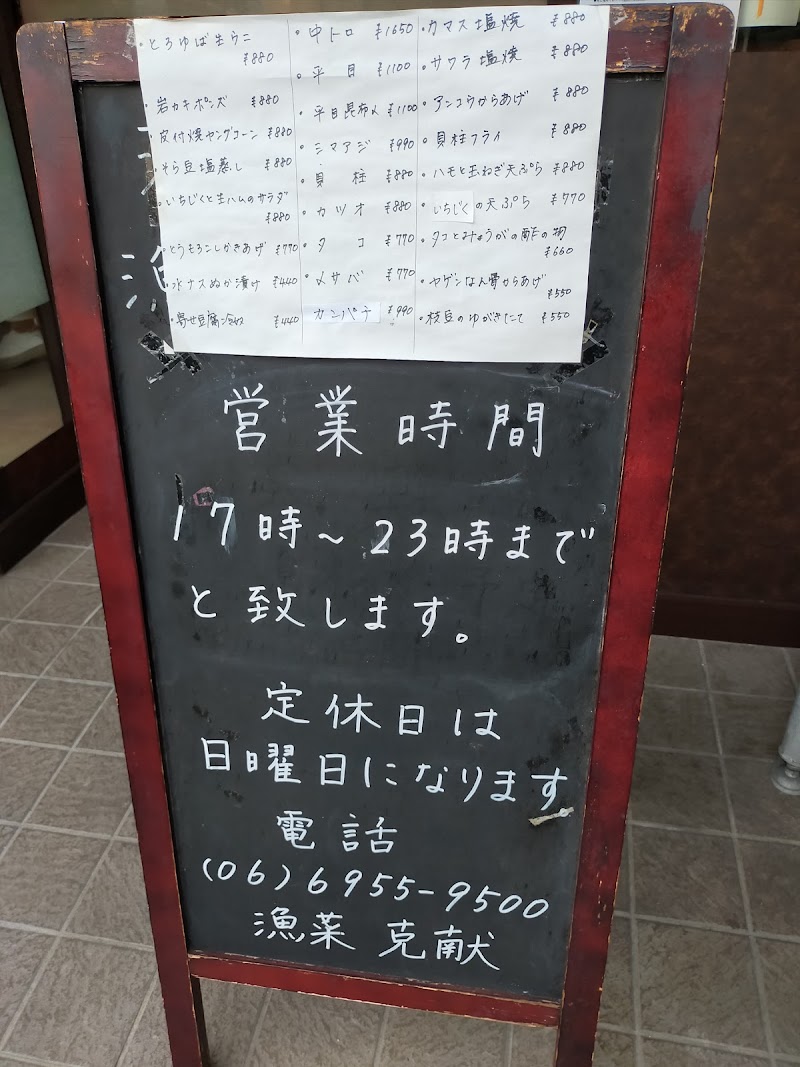 ・とろゆば生うに
¥880
・岩カキポンズ ¥880
・皮付焼ヤングコーン ¥880
・そら豆塩蒸し ¥880
・いちじくと生ハムのサラダ
¥880
・とうもろこしかきあげ ¥770
・水ナスぬか漬け ¥440
・寄せ豆腐冷奴 ¥440
・中トロ ¥1650
・平目 ¥1100
・平目昆布〆 ¥1100
・シマアジ ¥990
・貝柱 ¥880
・カツオ ¥880
・タコ ¥770
・〆サバ ¥770
カンパチ ¥990
・カマス塩焼 ¥880
・サワラ塩焼 ¥880
・アンコウからあげ ¥880
・貝柱フライ ¥880
・ハモと玉ねぎ天ぷら ¥880
・いちじくの天ぷら ¥770
・タコとみょうがの酢の物
¥660
・ヤゲンなん骨からあげ
¥550
・枝豆のゆがきたて ¥550
営業時間
17時~23時まで
と致します。
定休日は
日曜日になります
電話
(06)6955-9500
漁菜 克献